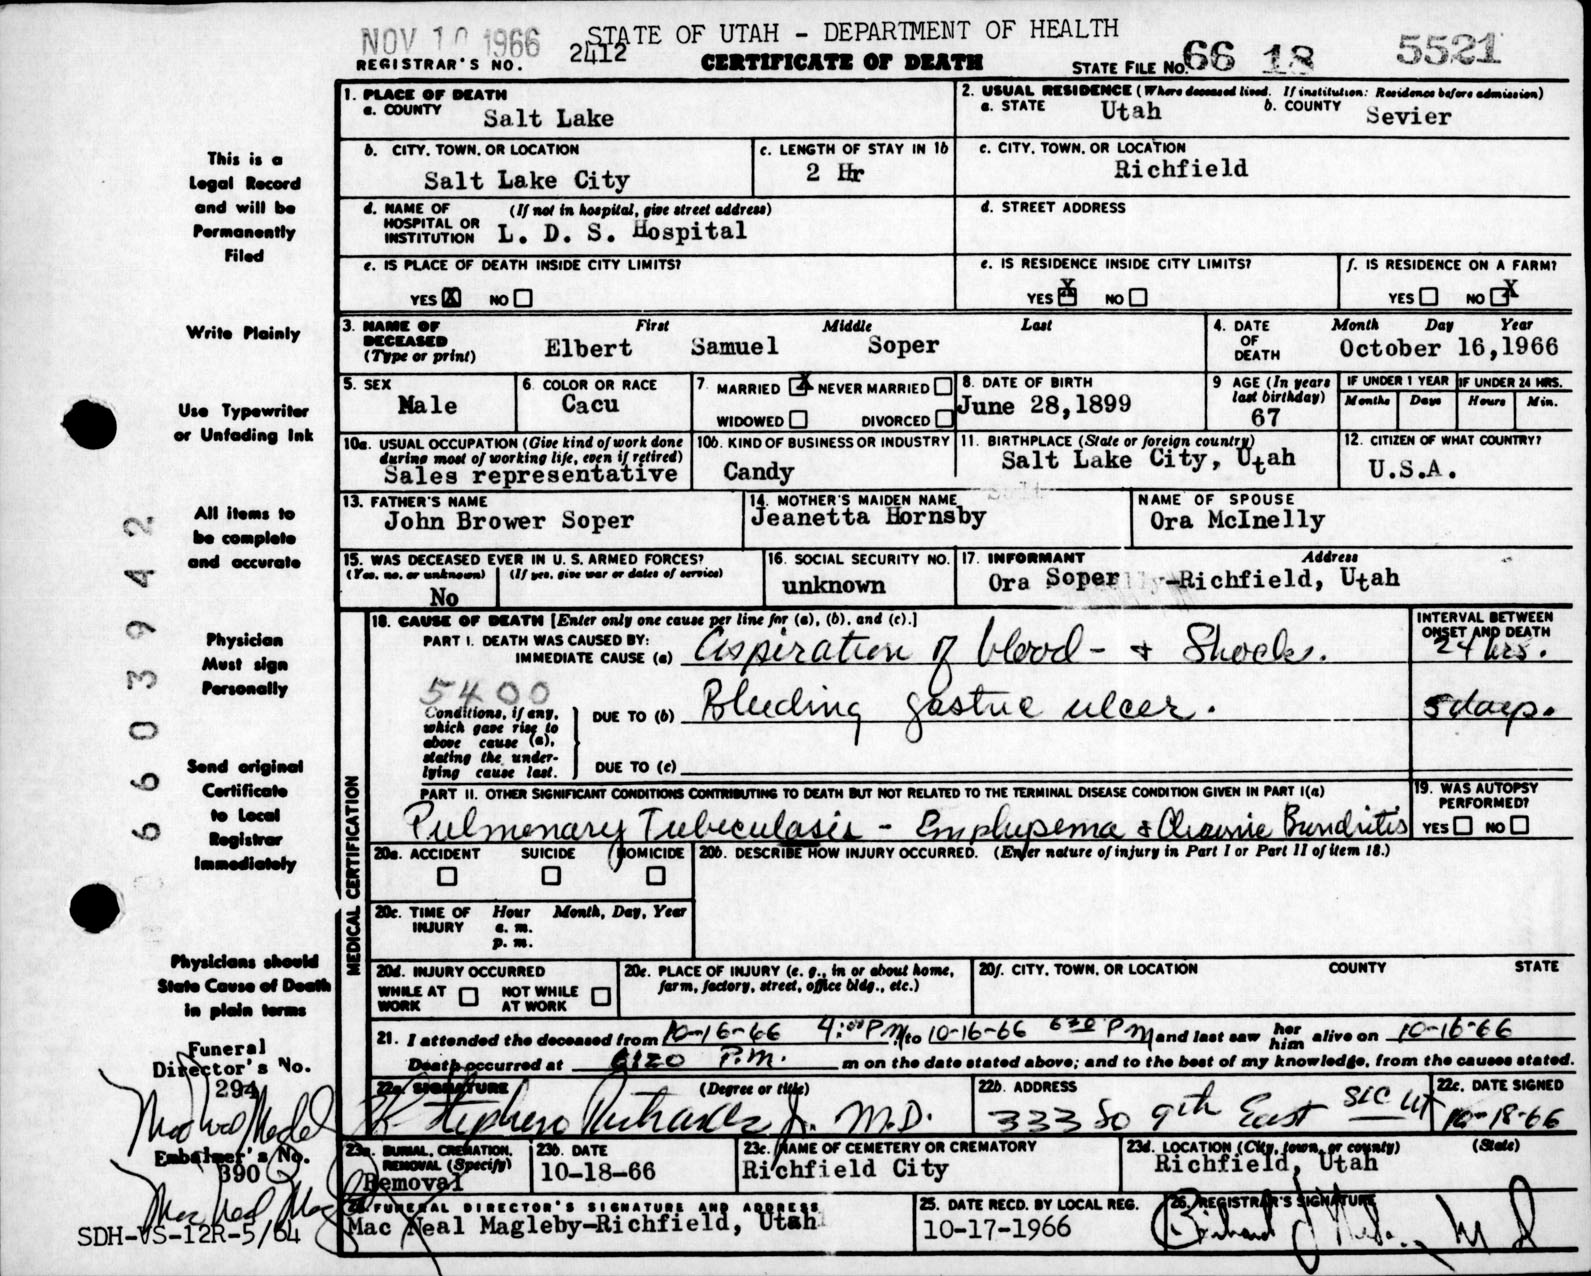 NOV 10 1966
STATE OF UTAH - DEPARTMENT OF HEALTH
REGISTRAR'S NO. 2412
CERTIFICATE OF DEATH
STATE FILE NO. 66 18 5521
This is a
Legal Record
and will be
Permanently
Filed
Write Plainly
Use Typewriter
or Unfading Ink
All items to
be complete
and accurate
Physician
Must sign
Personally
Send original
Certificate
to Local
Registrar
Immediately
Physicians should
State Cause of Death
in plain terms
Funeral
Director's No.
294
Embalmer's No.
390
SDH-VS-12R-5/64
66 039 42
1. PLACE OF DEATH
a. COUNTY Salt Lake
2. USUAL RESIDENCE (Where deceased lived. If institution: Residence before admission)
a. STATE Utah b. COUNTY Sevier
b. CITY, TOWN, OR LOCATION
Salt Lake City
c. LENGTH OF STAY IN 1b
2 Hr
c. CITY, TOWN, OR LOCATION
Richfield
d. NAME OF HOSPITAL OR INSTITUTION (If not in hospital, give street address)
L. D. S. Hospital
d. STREET ADDRESS
e. IS PLACE OF DEATH INSIDE CITY LIMITS?
YES X NO
e. IS RESIDENCE INSIDE CITY LIMITS?
YES X NO
f. IS RESIDENCE ON A FARM?
YES NO X
3. NAME OF DECEASED (Type or print) First Middle Last
Elbert Samuel Soper
4. DATE OF DEATH Month Day Year
October 16,1966
5. SEX
Male
6. COLOR OR RACE
Cacu
7. MARRIED X NEVER MARRIED
WIDOWED DIVORCED
8. DATE OF BIRTH
June 28,1899
9 AGE (In years last birthday)
67
IF UNDER 1 YEAR
Months Days
IF UNDER 24 HRS.
Hours Min.
10a. USUAL OCCUPATION (Give kind of work done during most of working life, even if retired)
Sales representative
10b. KIND OF BUSINESS OR INDUSTRY
Candy
11. BIRTHPLACE (State or foreign country)
Salt Lake City, Utah
12. CITIZEN OF WHAT COUNTRY?
U.S.A.
13. FATHER'S NAME
John Brower Soper
14. MOTHER'S MAIDEN NAME
Jeanetta Hornsby
NAME OF SPOUSE
Ora McInelly
15. WAS DECEASED EVER IN U.S. ARMED FORCES?
(Yes, no, or unknown) (If yes, give war or dates of service)
No
16. SOCIAL SECURITY NO.
unknown
17. INFORMANT Address
Ora Soper -Richfield, Utah
MEDICAL CERTIFICATION
18. CAUSE OF DEATH [Enter only one cause per line for (a), (b), and (c).]
INTERVAL BETWEEN ONSET AND DEATH
PART I. DEATH WAS CAUSED BY:
IMMEDIATE CAUSE (a) Aspiration of blood - + Shock. 24 hrs.
5400
Conditions, if any, which gave rise to above cause (a), stating the underlying cause last.
DUE TO (b) Bleeding gastric ulcer. 5 days.
DUE TO (c)
PART II. OTHER SIGNIFICANT CONDITIONS CONTRIBUTING TO DEATH BUT NOT RELATED TO THE TERMINAL DISEASE CONDITION GIVEN IN PART I(a)
Pulmonary Tubeculosis - Emphysema & Chronic
19. WAS AUTOPSY PERFORMED?
YES NO
20a. ACCIDENT SUICIDE HOMICIDE
20b. DESCRIBE HOW INJURY OCCURRED. (Enter nature of injury in Part I or Part II of item 18.)
20c. TIME OF INJURY Hour Month, Day, Year
a. m.
p. m.
20d. INJURY OCCURRED
WHILE AT WORK NOT WHILE AT WORK
20e. PLACE OF INJURY (e. g., in or about home, farm, factory, street, office bldg., etc.)
20f. CITY, TOWN, OR LOCATION COUNTY STATE
21. I attended the deceased from 10-16-66 4:00 P M to 10-16-66 630 P M and last saw her him alive on 10-16-66
Death occurred at P.M. m on the date stated above; and to the best of my knowledge, from the causes stated.
22a. SIGNATURE (Degree or title)
Stephens Richards Jr. M.D.
22b. ADDRESS
333 So 9th East SLC UT
22c. DATE SIGNED
10-18-66
23a. BURIAL, CREMATION, REMOVAL (Specify)
Removal
23b. DATE
10-18-66
23c. NAME OF CEMETERY OR CREMATORY
Richfield City
23d. LOCATION (City, town, or county) (State)
Richfield, Utah
24. FUNERAL DIRECTOR'S SIGNATURE AND ADDRESS
Mac Neal Magleby-Richfield, Utah
25. DATE RECD. BY LOCAL REG.
10-17-1966
26. REGISTRAR'S SIGNATURE